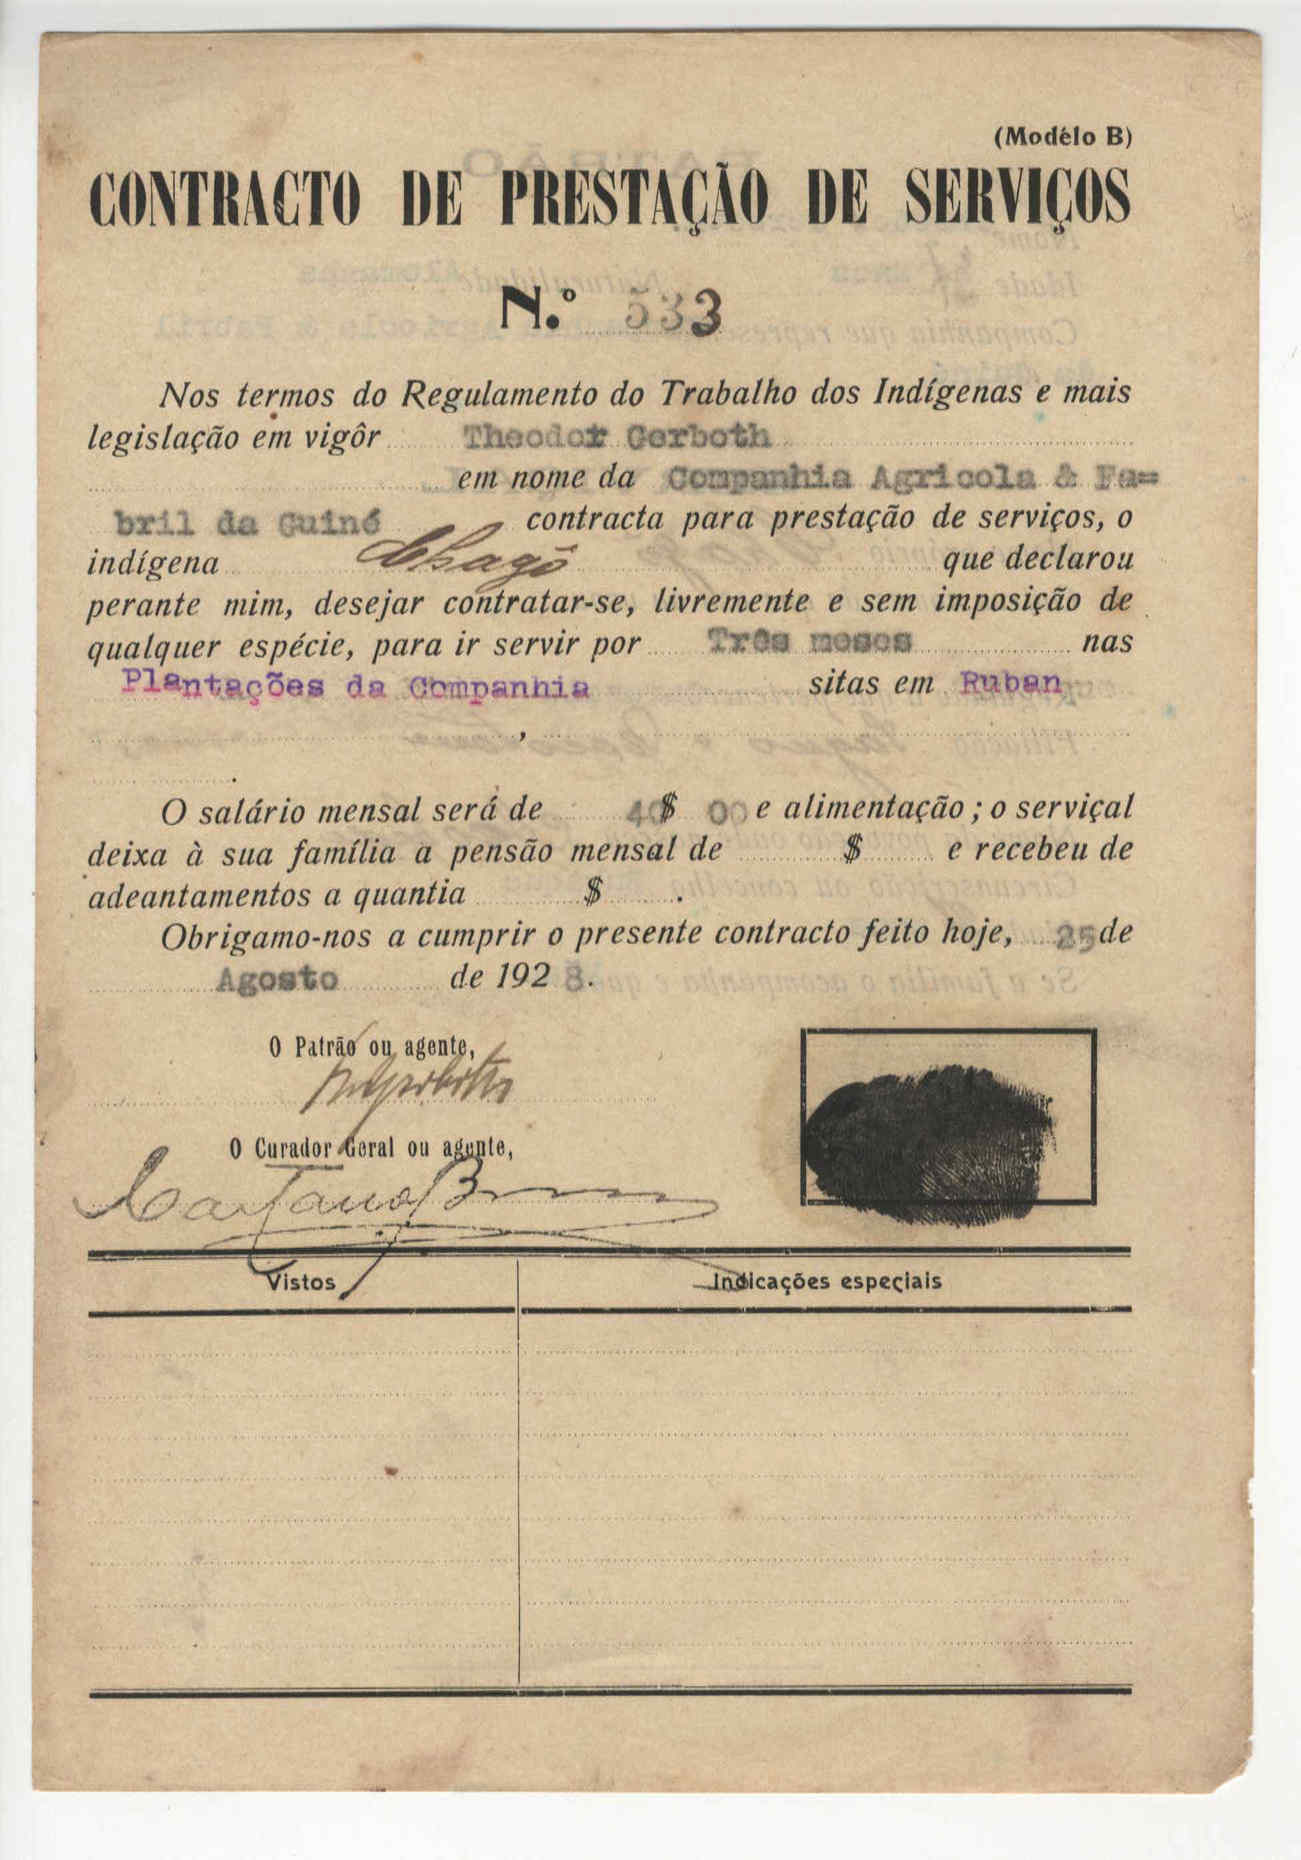 (Modélo B)
CONTRACTO DE PRESTAÇÃO DE SERVIÇOS
N.º 533
Nos termos do Regulamento do Trabalho dos Indígenas e mais
legislação em vigôr Theodor Gerboth
em nome da Companhia Agricola & Fa=
bril da Guiné contracta para prestação de serviços, o
indígena Chagô que declarou
perante mim, desejar contratar-se, livremente e sem imposição de
qualquer espécie, para ir servir por Três meses nas
Plantações da Companhia sitas em Ruban
,
.
O salário mensal será de 40$ 00 e alimentação; o serviçal
deixa à sua família a pensão mensal de $ e recebeu de
adeantamentos a quantia $ .
Obrigamo-nos a cumprir o presente contracto feito hoje, 25 de
Agosto de 1928.
O Patrão ou agente,
O Curador Geral ou agente,
Caetano
Vistos Indicações especiais